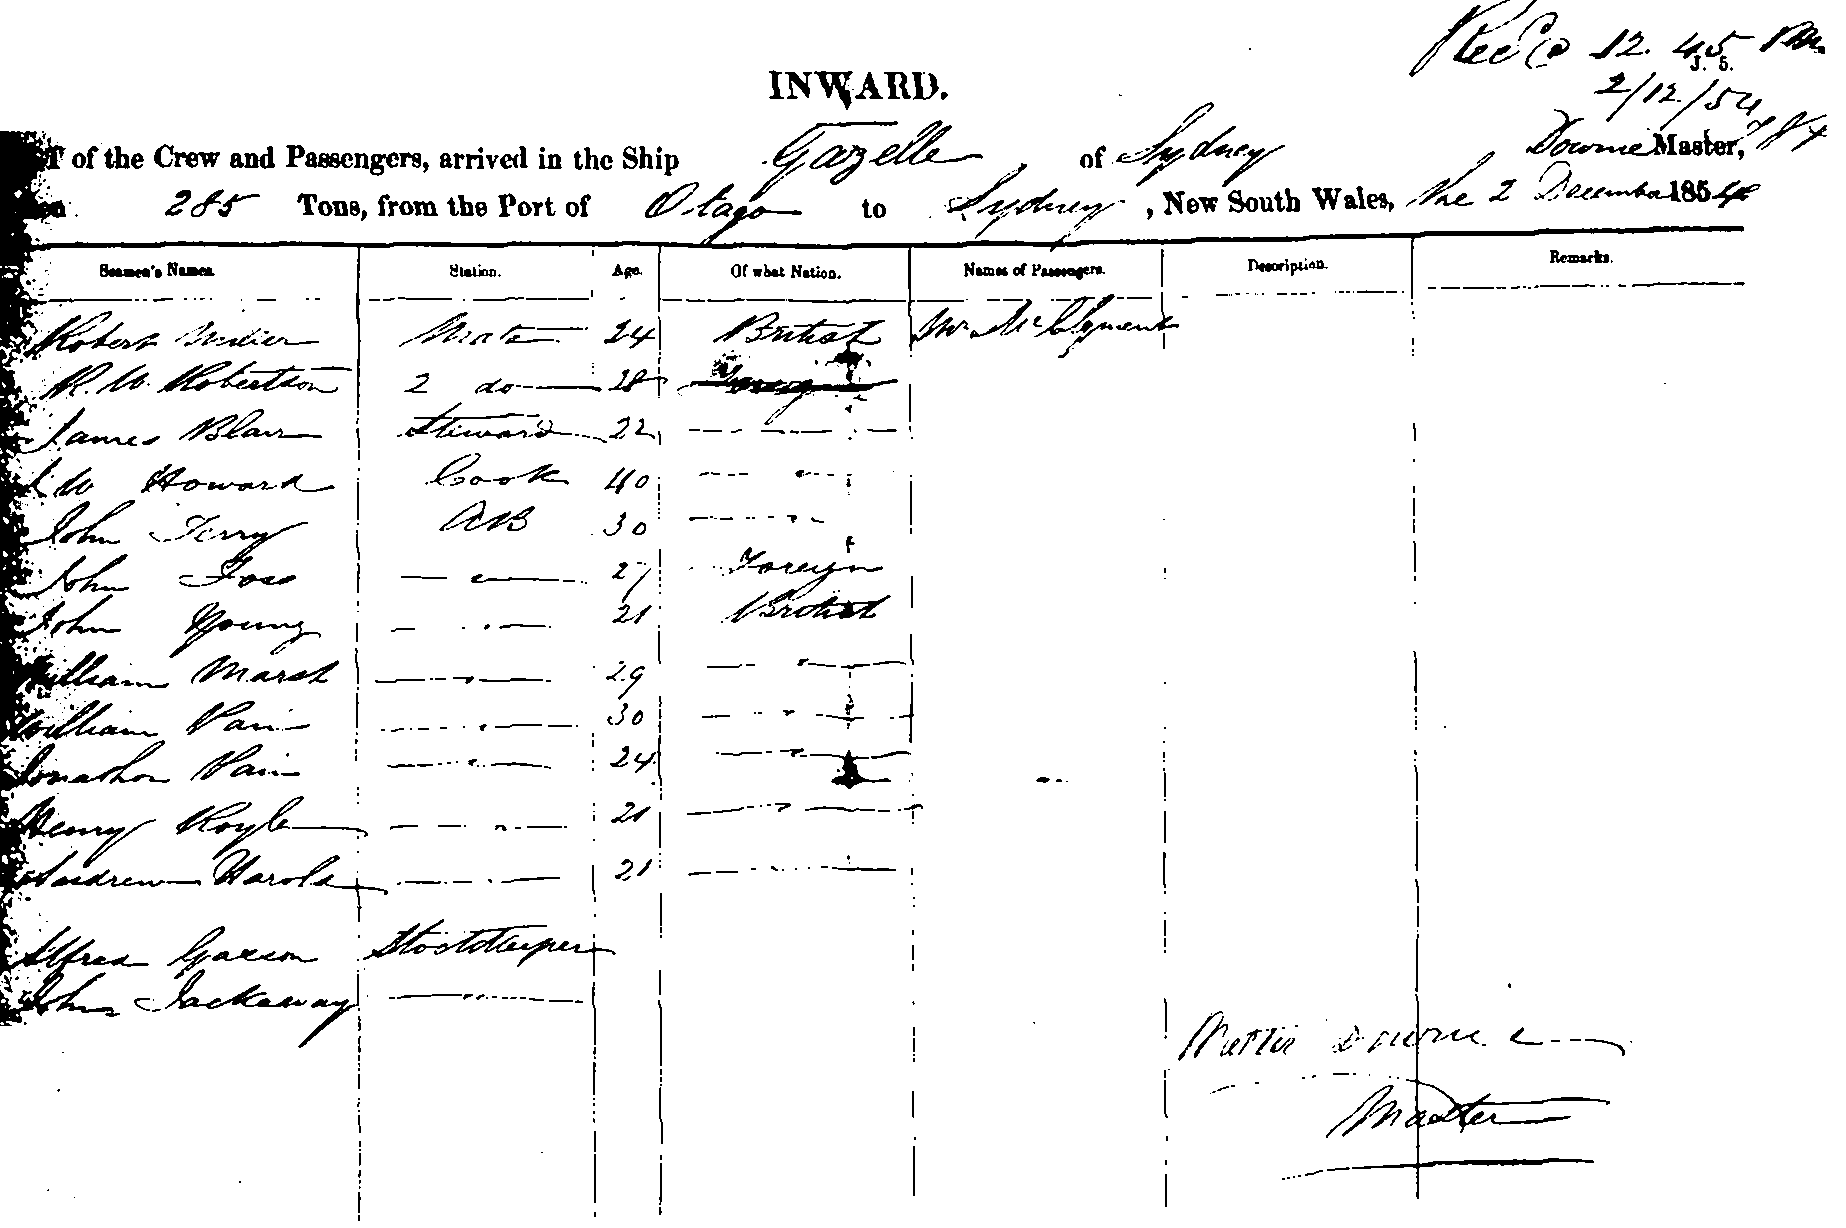 Recd 12.45 PM
J. 5.
2/12/54
INWARD.
of the Crew and Passengers, arrived in the Ship Gazelle of Sydney Downie Master,
285 Tons, from the Port of Otago to Sydney, New South Wales, the 2 December 1854
Seamen's Names. Station. Age. Of what Nation. Names of Passengers. Description. Remarks.
Robert Mate 24 British Mr McClyment
R. W. Robertson 2 do 28 Foreign
James Blair Steward 22
W Howard Cook 40
John Terry AB 30
John Foss 27 Foreign
John Young 21 British
William Marsh 29
William Pain 30
Jonathon Pain 24
Henry Royle 21
Andrew Harold 21
Alfred Garson Stockkeeper
John Jackaway
Downie
Master